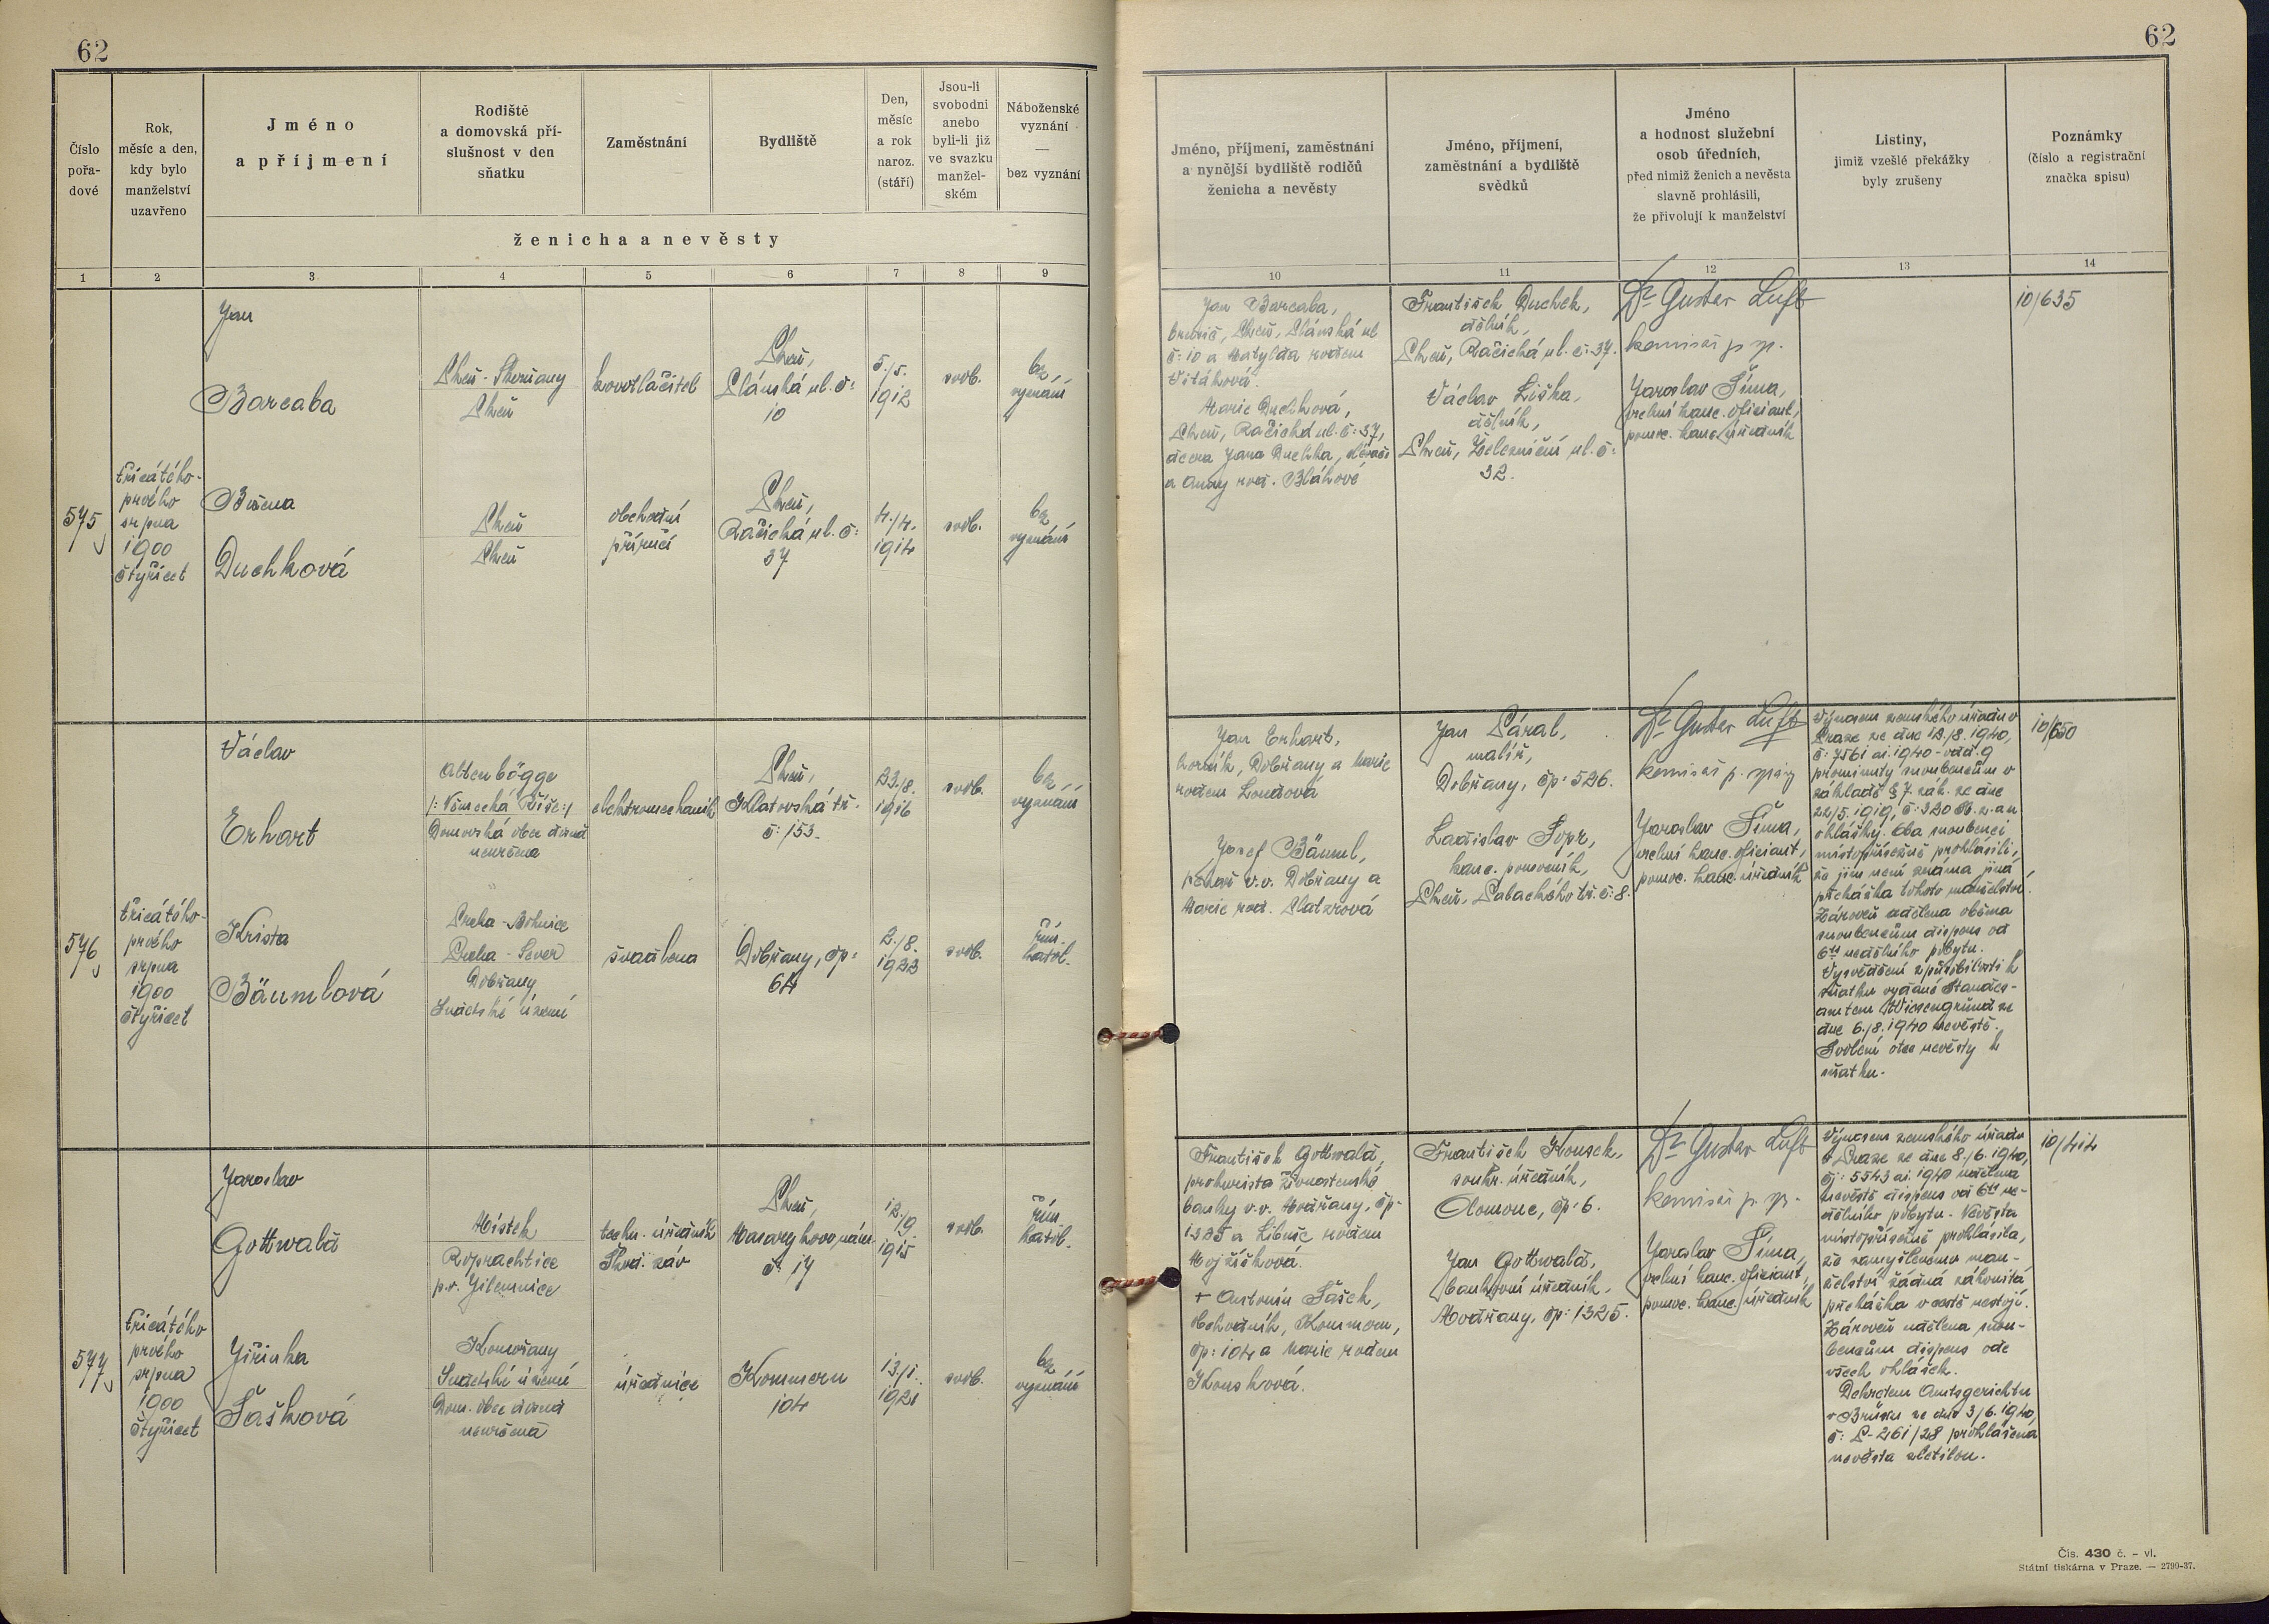 62
62
Číslo
pořa-
dové
Rok,
měsíc a den,
kdy bylo
manželství
uzavřeno
Jméno
a příjmení
Rodiště
a domovská pří-
slušnost v den
sňatku
Zaměstnání
Bydliště
Den,
měsíc
a rok
naroz.
(stáří)
Jsou-li
svobodni
anebo
byli-li již
ve svazku
manžel-
ském
Náboženské
vyznání
—
bez vyznání
ženicha a nevěsty
1 2 3 4 5 6 7 8 9
Jméno, příjmení, zaměstnání
a nynější bydliště rodičů
ženicha a nevěsty
Jméno, příjmení,
zaměstnání a bydliště
svědků
Jméno
a hodnost služební
osob úředních,
před nimiž ženich a nevěsta
slavně prohlásili,
že přivolují k manželství
Listiny,
jimiž vzešlé překážky
byly zrušeny
Poznámky
(číslo a registrační
značka spisu)
10 11 12 13 14
575
třicátého-
prvého
srpna
1900
čtyřicet
Jan
Barcaba
Plzeň - Skvrňany
Plzeň
kovotlačitel
Plzeň,
Plánská ul. č:
10
5./5.
1912
svob.
bez
vyznání
Božena
Duchková
Plzeň
Plzeň
obchodní
příručí
Plzeň,
Račická ul. č:
37
4./4.
1914
svob.
bez
vyznání
Jan Barcaba,
Plzeň, Plánská ul
č: 10 a Matylda rodem
Vitáková.
Marie Duchková,
Plzeň, Račická ul. č: 37,
dcera Jana Duchka,
a Anny rod. Bláhové
František Duchek,
dělník,
Plzeň, Račická ul. č: 37.
Václav Liška,
dělník,
Plzeň, Železniční ul. č:
32.
Dr Gustav Luft
komisař p. sp.
Jaroslav Šíma,
vrchní kanc. oficiant,
pomoc. kanc. úředník
10/635
576
třicátého-
prvého
srpna
1900
čtyřicet
Václav
Erhart
Altenbögge
/: Německá Říše :/
Domovská obec dosud
neurčena
elektromechanik
Plzeň,
Klatovská tř.
č: 153.
23./8.
1916
svob.
bez
vyznání
Krista
Bäumlová
Praha - Bohnice
Praha - Sever
Dobřany
Sudetské území
švadlena
Dobřany, čp:
64
2./8.
1922
svob.
řím.
katol.
Jan Erhart,
horník, Dobřany a Marie
rodem Loudová
Josef Bäuml,
v.v. Dobřany a
Marie rod. Slatzrová
Jan Páral,
malíř,
Dobřany, čp: 526.
Ladislav Šopr,
kanc. pomocník,
Plzeň, Palackého tř. č: 8.
Dr Gustav Luft
komisař p. správy
Jaroslav Šíma,
vrchní kanc. oficiant,
pomoc. kanc. úředník
Výnosem zemského úřadu v
Praze ze dne 12./8. 1940,
č: 7561 ai. 1940 - odd. 9
prominuty snoubencům v
základě § 7. zák. ze dne
22/5. 1919, č: 320 Sb. z. a n.
ohlášky. Oba snoubenci
místopřísežně prohlásili,
že jim není známa jiná
překážka tohoto manželství.
Zároveň udělena oběma
snoubencům dispens od
6ti nedělního pobytu.
Vysvědčení způsobilosti k
sňatku vydané Standes-
amtem Wiesengrund ze
dne 6./8. 1940 nevěstě.
Svolení otce nevěsty k
sňatku.
10/650
577
třicátého
prvého
srpna
1900
čtyřicet
Jaroslav
Gottwald
Místek
Roprachtice
p. o. Jilemnice
techn. úředník
Škod. záv
Plzeň,
Masarykovo nám.
č: 17
12./9.
1915
svob.
řím.
katol.
Jiřinka
Šašková
Komořany
Sudetské území
Dom. obec dosud
neurčena
úřednice
Kommern
104
13./1.
1921
svob.
bez
vyznání
František Gottwald,
prokurista Živnostenské
banky v.v. Modřany, čp:
1325 a Libuše rodem
Mojžíšková.
+ Antonín Šašek,
obchodník, Kommern,
čp: 104 a Marie rodem
Kousková.
František Kousek,
soukr. úředník,
Olomouc, čp: 6.
Jan Gottwald,
bankovní úředník,
Modřany, čp: 1325.
Dr Gustav Luft
komisař p. sp.
Jaroslav Šíma,
vrchní kanc. oficiant,
pomoc. kanc. úředník
Výnosem zemského úřadu
v Praze ze dne 8./6. 1940,
čj: 5543 ai. 1940 udělena
nevěstě dispens od 6ti ne-
dělního pobytu. Nevěsta
místopřísežně prohlásila,
že zamýšlenému man-
želství žádná zákonitá
překážka v cestě nestojí.
Zároveň udělena snou-
bencům dispens ode
všech ohlášek.
Dekretem Amtsgerichtu
v Brüxu ze dne 3/6. 1940,
č: P - 261/28 prohlášena
nevěsta zletilou.
10/414
Čís. 430 č. – vl.
Státní tiskárna v Praze. — 2799-37.